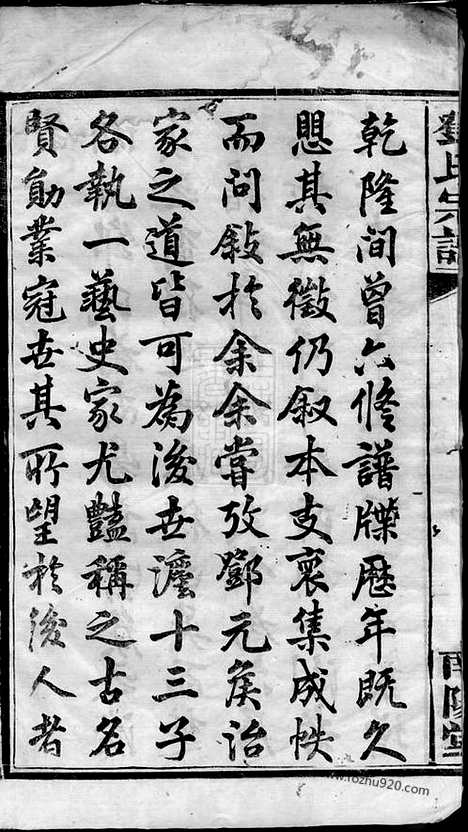 鄧氏宗譜
南陽堂
乾隆间曾六脩譜牒歷年既久
思其無徵仍叙本支裒集成帙
而问敍於余余嘗攷鄧元矦治
家之道皆可為後世瀍十三子
各執一藝史家尤豔稱之古名
賢勛業冠世其所望於後人者
www.rozhu920.com